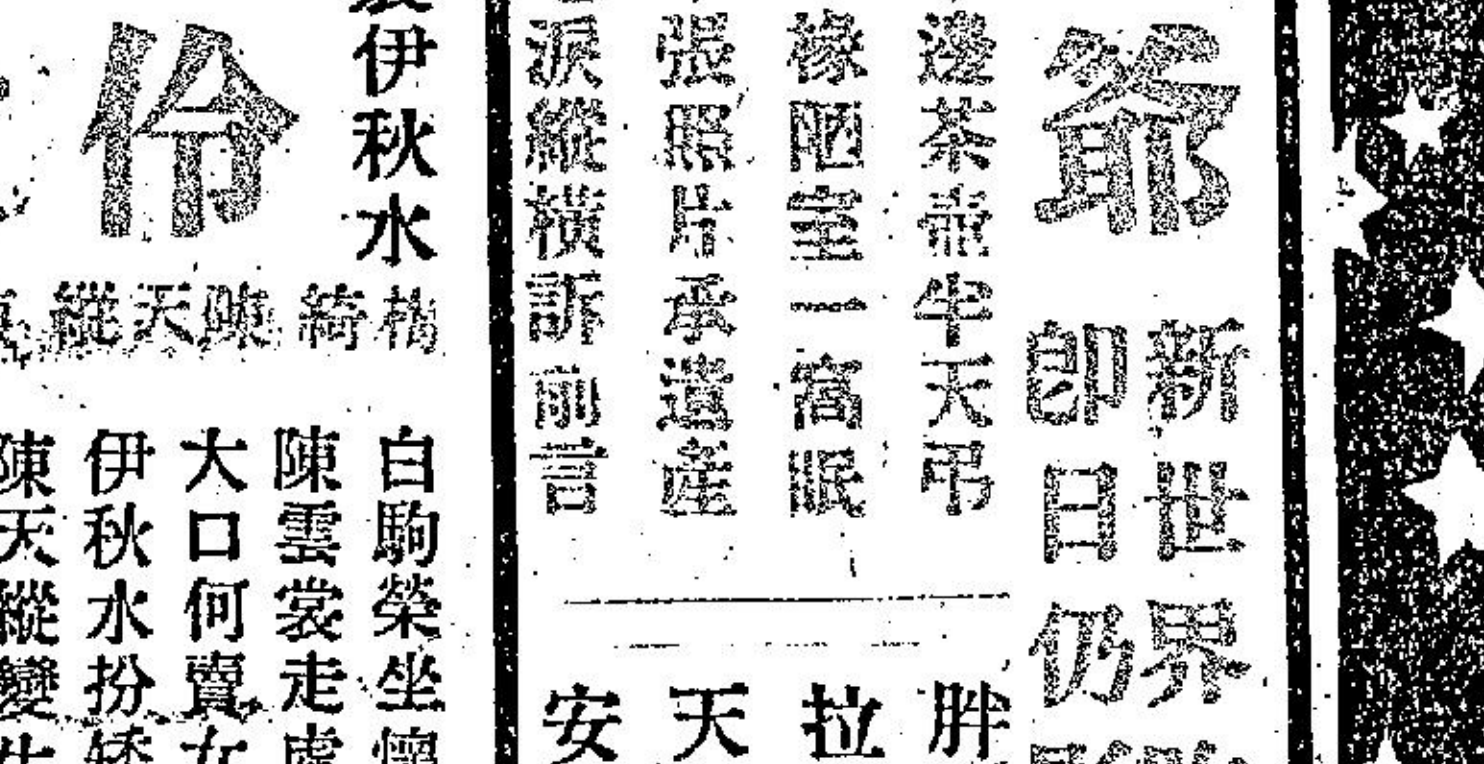 爺
新世界
即日仍
邊茶壺半天吊
椽陋室一宮眠
張照片承遺產
淚縱橫訴前言
胖
拉
天
安
裳伊秋水
伶
綺陳天縱
白駒榮坐懷
陳雲裳走處
大口何賣女
伊秋水扮矮
陳天縱變牛